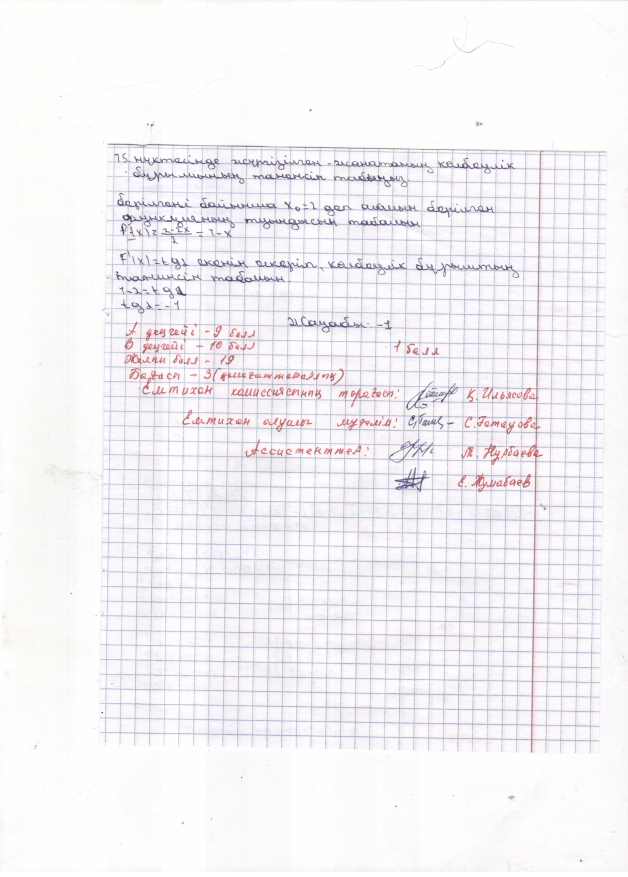 15. нүктесінде жүргізілген жанаманың көлбеулік
бұрышының тангенсін табыңыз.
берілгені бойынша x₀=2 деп алып берілген
функцияның туындысын табамын
f'(x)=\frac{2-2x}{2}=1-x
F'(x)=tgα екенін ескеріп, көлбеулік бұрыштың
тангенсін табамын.
1-2=tgα
tgα=-1
Жауабы: -1
А деңгейі - 9 балл
В деңгейі - 10 балл
1 балл
Жалпы балл - 19
Бағасы - 3 (қанағаттанарлық)
Емтихан комиссиясының төрағасы: Қ. Ильясова
Емтихан алушы мұғалім: С. Татаухова
Ассистенттер: М. Нұрбаева
Е. Жумабаев